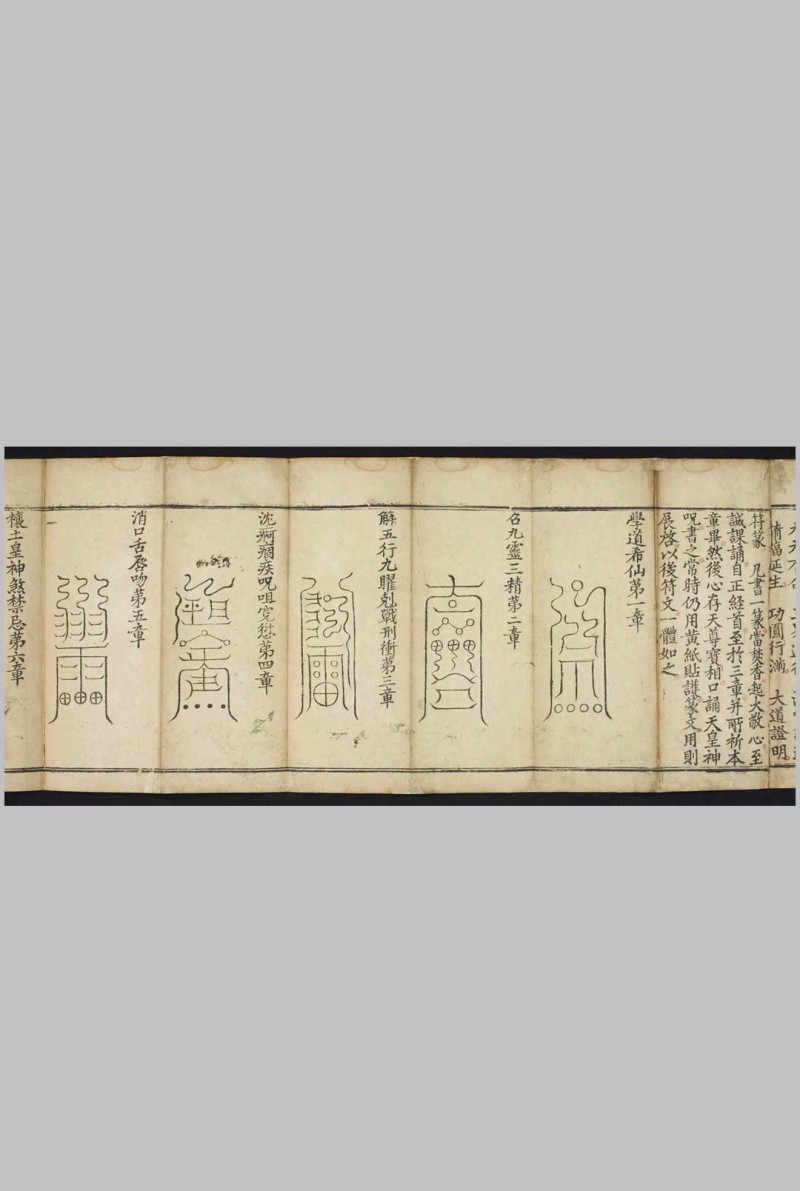 情愊延生 功圓行滿 大道證明
符篆 凡書一篆當焚香起大敬心至
誠課誦自正経首至於三章并所祈本
章畢然後心存天尊寳相口誦天皇神
呪書之常時仍用黄紙貼護篆文用則
展啓以後符文一體如之
學道希仙第一章
召九靈三精第二章
解五行九曜剋戰刑衝第三章
沈痾痼疾呪咀寃愆第四章
消口舌唇吻第五章
禳土皇神煞禁忌第六章